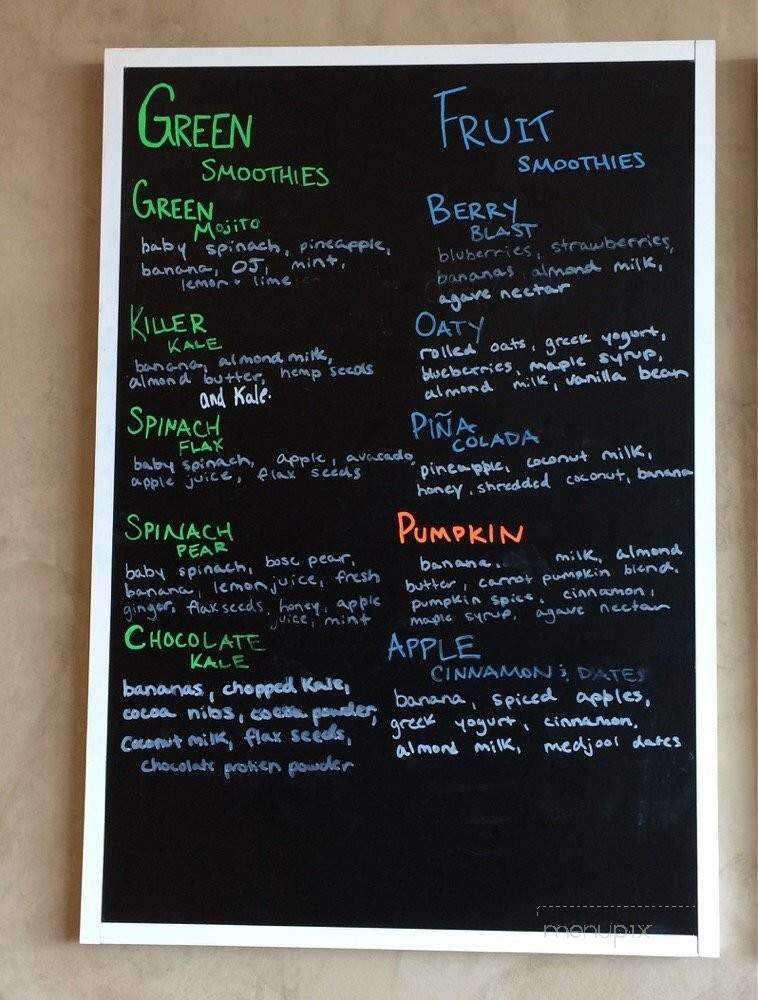 GREEN
SMOOTHIES
GREEN
MOJITO
baby spinach, pineapple,
banana, OJ, mint,
lemon + lime
KILLER
KALE
banana, almond milk,
almond butter, hemp seeds
and Kale.
SPINACH
FLAX
baby spinach, apple, avacado,
apple juice, flax seeds
SPINACH
PEAR
baby spinach, bosc pear,
banana, lemon juice, fresh
ginger, flaxseeds, honey, apple
juice, mint
CHOCOLATE
KALE
bananas, chopped Kale,
cocoa nibs, cocoa powder,
Coconut milk, flax seeds,
chocolate protien powder
FRUIT
SMOOTHIES
BERRY
BLAST
bluberries, strawberries,
bananas almond milk,
agave nectar
OATY
rolled oats, greek yogurt,
blueberries, maple syrup,
almond milk, vanilla bean
PIÑA
COLADA
pineapple, coconut milk,
honey, shredded coconut, banana
PUMPKIN
banana, milk, almond
butter, carrot pumpkin blend,
pumpkin spice, cinnamon,
maple syrup, agave nectar
APPLE
CINNAMON & DATES
banana, spiced apples,
greek yogurt, cinnamon,
almond milk, medjool dates
menupix